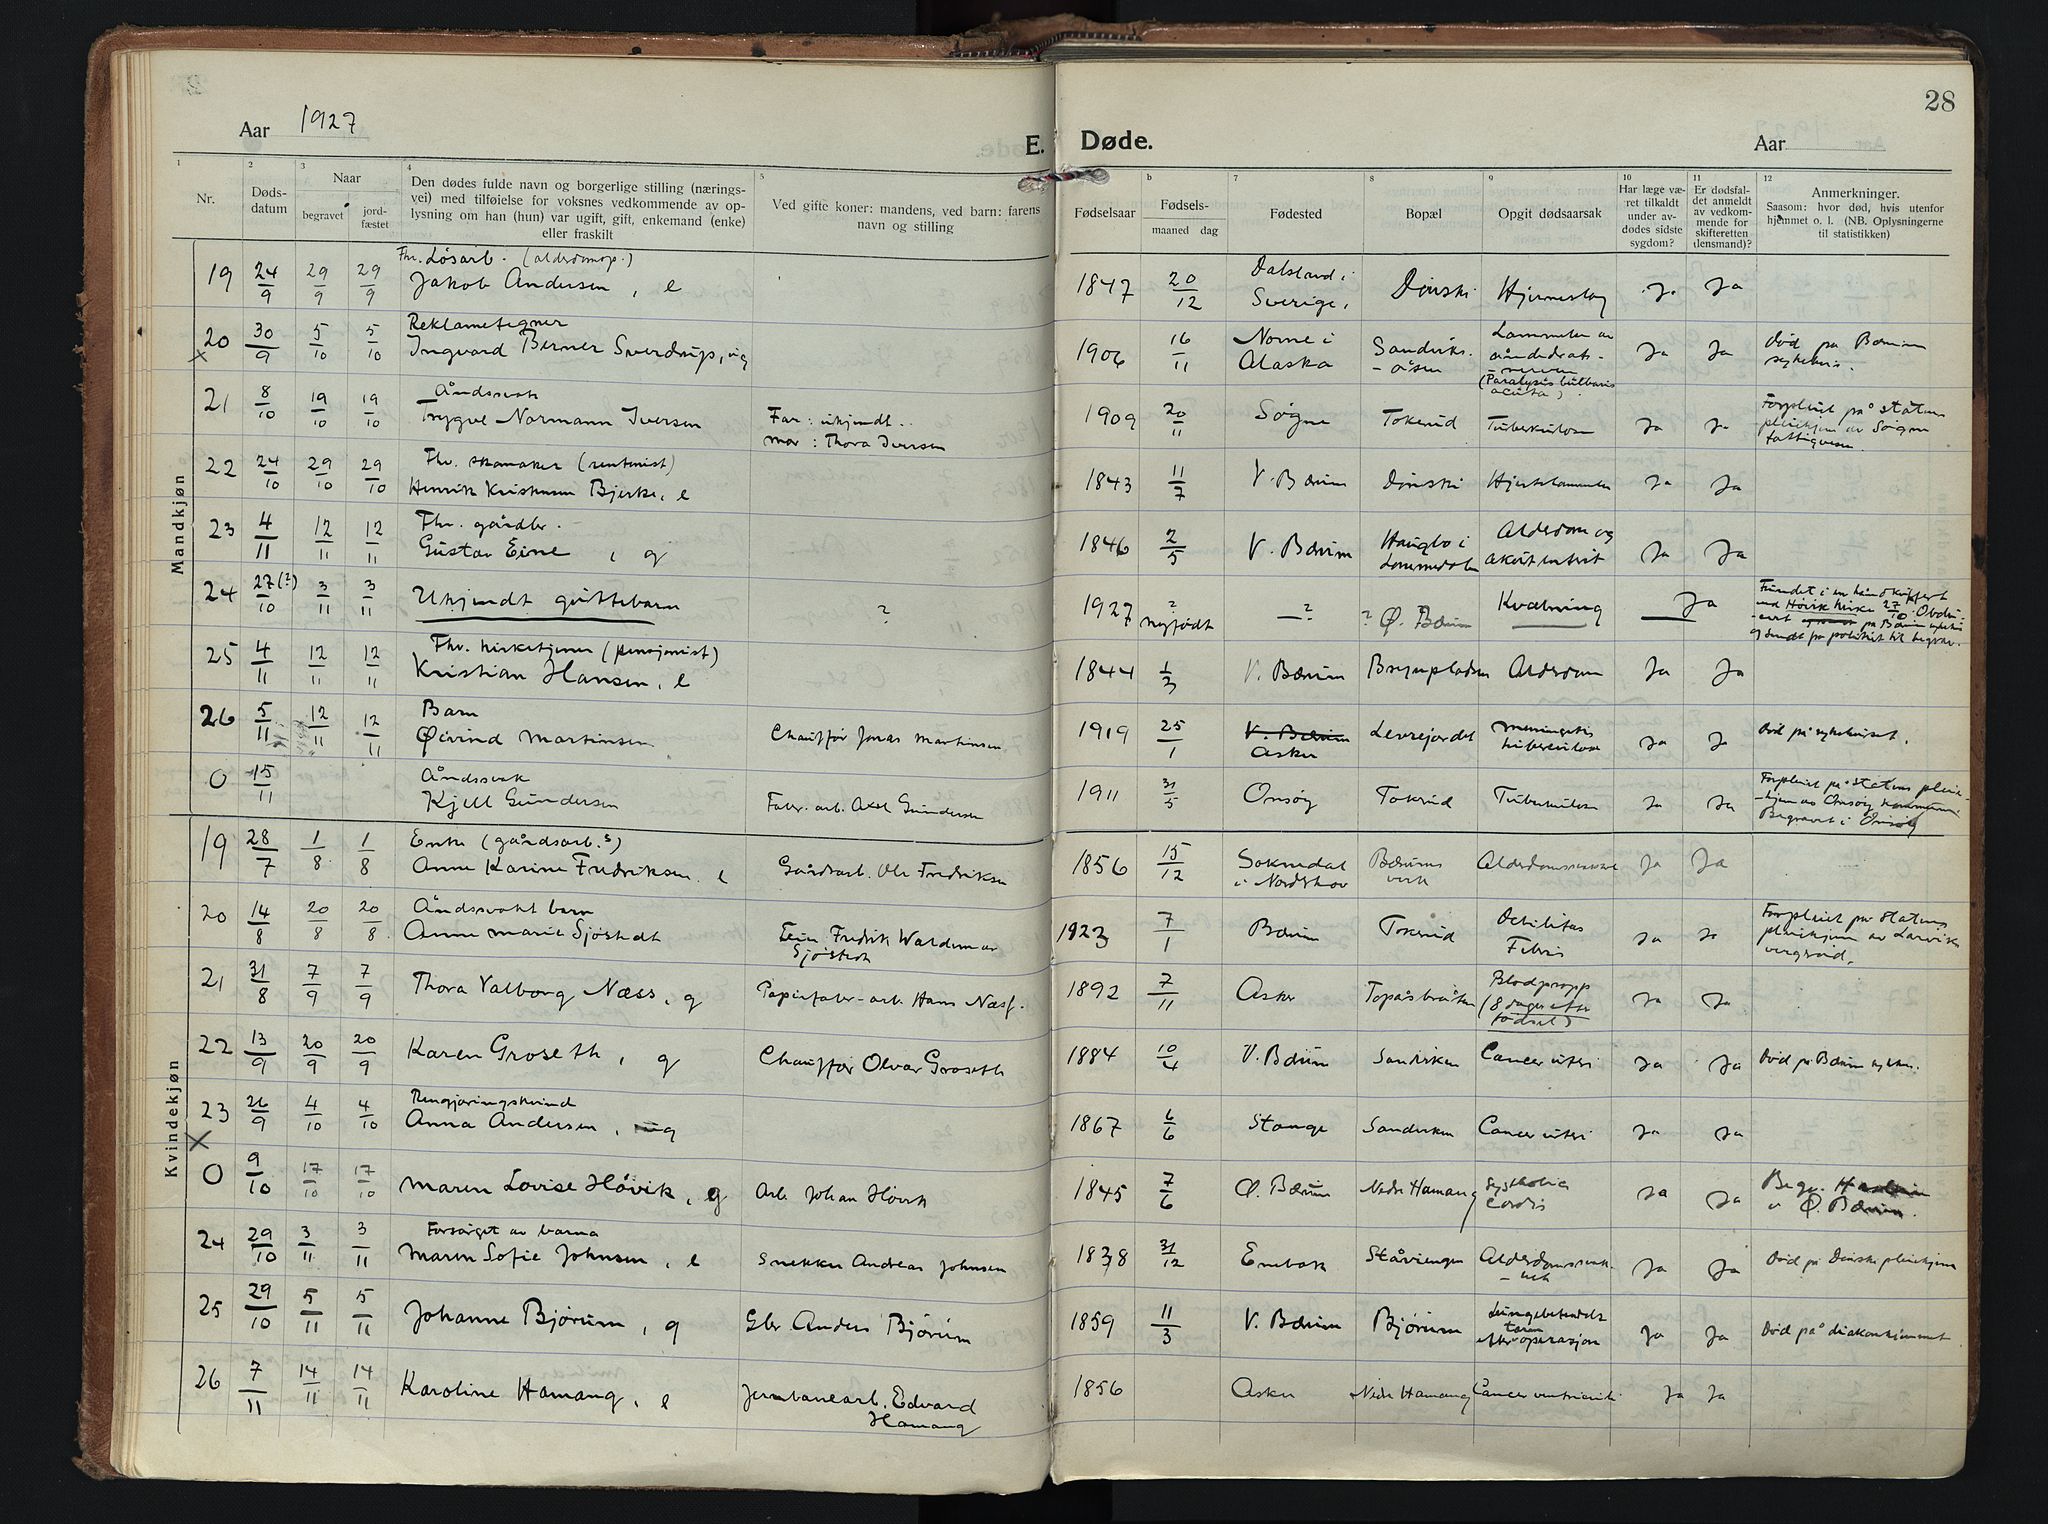 28
Aar 1927
E. Døde.
Aar
1 2 3 4 5 b 7 8 9 10 11 12
Nr.
Døds-
datum
Naar
begravet
jord-
fæstet
Den dødes fulde navn og borgerlige stilling (nærings-
vei) med tilføielse for voksnes vedkommende av op-
lysning om han (hun) var ugift, gift, enkemand (enke)
eller fraskilt
Ved gifte koner: mandens, ved barn: farens
navn og stilling
Fødselsaar
Fødsels-
maaned dag
Fødested
Bopæl
Opgit dødsaarsak
Har læge væ-
ret tilkaldt
under av-
dødes sidste
sygdom?
Er dødsfal-
det anmeldt
av vedkom-
mende for
skifteretten
(lensmand)?
Anmerkninger.
Saasom: hvor død, hvis utenfor
hjemmet o. l. (NB. Oplysningerne
til statistikken)
Mandkjøn
19 24/9 29/9 29/9 Fhv. Løsarb. (alderdomsp.)
Jakob Andersen, e 1847 20/12 Dalsland i
Sverige, Dønski Hjerneslag Ja Ja
20 x 30/9 5/10 5/10 Reklametegner
Ingvard Berner Sverdrup, ug 1906 16/11 Nome i
Alaska Sandviks-
-åsen Lammelse av
åndedræts-
-nerven
(Paralysis bulbaris
acuta). Ja Ja Död på Bærum
sykehus.
21 8/10 19/10 19/10 Åndssvak
Trygve Normann Iversen Far: ukjendt..
mor: Thora Iversen 1909 20/11 Søgne Tokerud Tuberkulose Ja Ja Forpleiet på statens
pleiehjem av Søgne
fattigvesen
22 24/10 29/10 29/10 Fhv. skomaker (rentenist)
Henrik Kristensen Bjerke, e 1843 11/7 V. Bærum Dønski Hjertelammelse Ja Ja
23 4/11 12/11 12/11 Fhv. gårdbr.
Gustav Eine, g 1846 2/5 V. Bærum Haugbo i
Lommedalen Alderdom og
akut enterit Ja Ja
24 27(?)/10 3/11 3/11 Ukjendt guttebarn ? 1927 ?
nyfødt —? ? Ø. Bærum Kvælning — Ja Fundet i en håndkuffert
ved Høvik kirke 27/10. Obdu-
-cert på Bærum sykehus
og sendt fra politiet til begrav.
25 4/11 12/11 12/11 Fhv. kirketjener (pensjonist)
Kristian Hansen, e 1844 1/3 V. Bærum Brynpladsen Alderdom Ja Ja
26 5/11 12/11 12/11 Barn
Øivind Martinsen Chauffør Jonas Martinsen 1919 25/1 V. Bærum
Asker Levrejordet Meningitis
tuberkulosa Ja Ja Död på sykehuset.
0 15/11 Åndssvak
Kjell Gundersen Fabr. arb. Axel Gundersen 1911 31/5 Onsøy Tokerud Tuberkulose Ja Ja Forpleiet på statens pleie-
-hjem av Onsøy kommune
Begravet i Onsøy
Kvindekjøn
19 28/7 1/8 1/8 Enke (gårdsarb.s)
Anne Karine Fredriksen, e Gårdsarb. Ole Fredriksen 1856 15/12 Soknedal
i Nordrhov Bærums
verk Alderdomssvakhet Ja Ja
20 14/8 20/8 20/8 Åndssvakt barn
Anne Marie Sjøstedt Fredrik Waldemar
Sjøstedt 1923 7/1 Bærum Tokerud Debilitas
Febris Ja Ja Forpleiet på statens
pleiehjem av Larvik
vergeråd.
21 31/8 7/9 7/9 Thora Valborg Næss, g Papirfabr-arb. Hans Næss. 1892 7/11 Asker Topåsbråten Blodpropp
(8 dager efter
fødsel) Ja Ja
22 13/9 20/9 20/9 Karen Groseth, g Chauffør Olvar Groseth 1884 10/4 V. Bærum Sandviken Cancer uteri Ja Ja Död på Bærum sykehus.
23 X 26/9 4/10 4/10 Rengjøringskvinde
Anna Andersen, ug 1867 6/6 Stange Sandviken Cancer uteri Ja Ja
0 9/10 17/10 17/10 Maren Lovise Høvik, g Arb. Johan Høvik 1845 7/6 Ø. Bærum Nedre Hamang Cordis Ja Ja Begr.
v Ø. Bærum.
24 29/10 3/11 3/11 Forsørget av barna
Maren Sofie Johnsen, e Snekker Andreas Johnsen 1838 31/12 Enebak Ståviengen Alderdomssvak-
-het Ja Ja Död på Dønski pleiehjem
25 29/10 5/11 5/11 Johanne Bjørum, g Gbr Anders Bjørum 1859 11/3 V. Bærum Bjørum Lungebetændelse
efter operasjon Ja Ja Död på diakonhjemmet
26 7/11 14/11 14/11 Karoline Hamang, e Jernbanearb. Edvard
Hamang 1856 Asker Nedre Hamang Cancer ventriculi Ja Ja